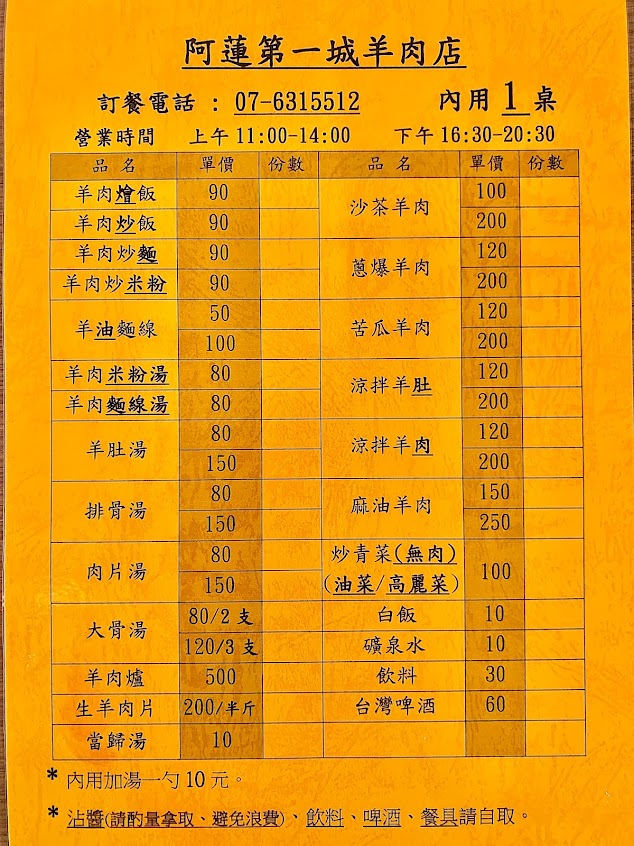 阿蓮第一城羊肉店
訂餐電話：07-6315512 內用 1 桌
營業時間 上午 11:00-14:00 下午 16:30-20:30
品名 單價 份數 品名 單價 份數
羊肉燴飯 90 沙茶羊肉 100
羊肉炒飯 90 200
羊肉炒麵 90 蔥爆羊肉 120
羊肉炒米粉 90 200
羊油麵線 50 苦瓜羊肉 120
100 200
羊肉米粉湯 80 涼拌羊肚 120
羊肉麵線湯 80 200
羊肚湯 80 涼拌羊肉 120
150 200
排骨湯 80 麻油羊肉 150
150 250
肉片湯 80 炒青菜(無肉) 100
150 (油菜/高麗菜)
大骨湯 80/2 支 白飯 10
120/3 支 礦泉水 10
羊肉爐 500 飲料 30
生羊肉片 200/半斤 台灣啤酒 60
當歸湯 10
* 內用加湯一勺 10 元。
* 沾醬(請酌量拿取、避免浪費)、飲料、啤酒、餐具請自取。